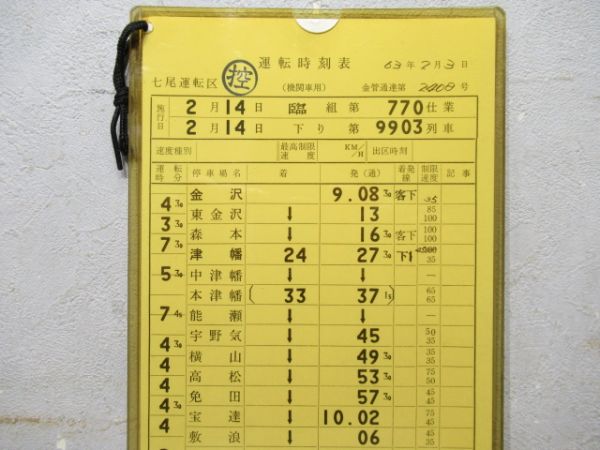 運転時刻表 63年2月3日
七尾運転区 控 (機関車用) 金管通達第 2008号
施行日 2月14日 臨 組第 770仕業
2月14日 下り 第 9903列車
速度種別 最高制限速度 KM/H 出区時刻
運転時分 停車場名 着 発(通) 着発線 制限速度 記事
金沢 9.08 30 客下 35
4 30
東金沢 ↓ 13 85 100
3 30
森本 ↓ 16 30 客下 100 100
7 30
津幡 24 27 30 下1 35
5 30
中津幡 ↓ ↓ —
本津幡 (33 37 15) 65 65
7 45
能瀬 ↓ ↓ —
宇野気 ↓ 45 50 35
4 30
横山 ↓ 49 30 35 35
4
高松 ↓ 53 30 75 50
4
免田 ↓ 57 30 45 45
4 30
宝達 ↓ 10.02 75 45
4
敷浪 ↓ 06 45 35